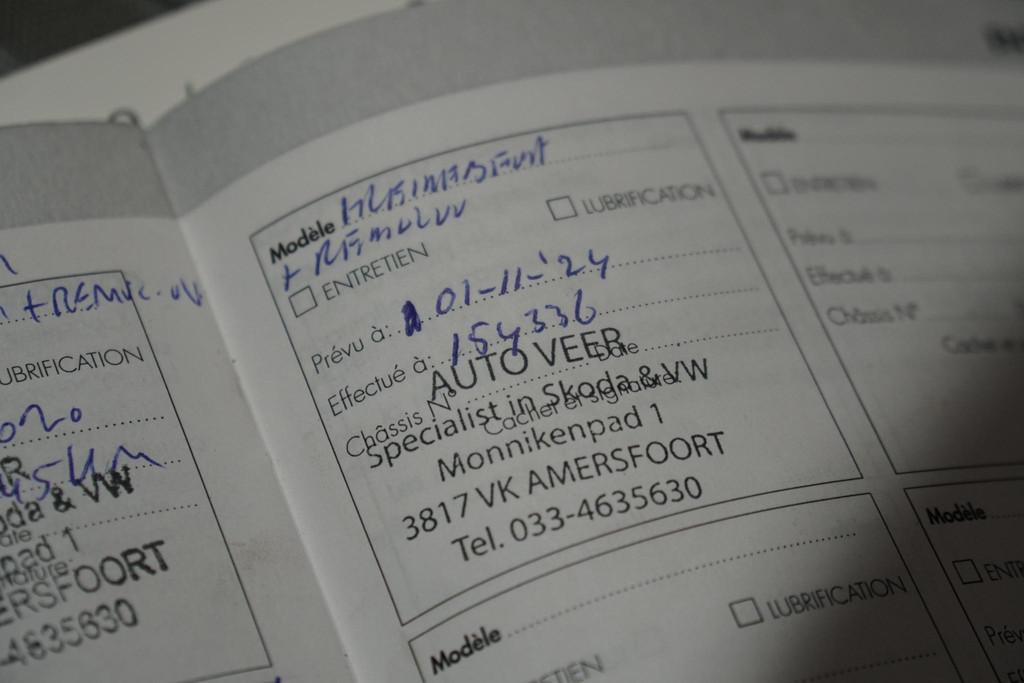 + REMVL.
UBRIFICATION
2020
45KM
oda & VW
ate
pad 1
nature:
ERSFOORT
4635630
Modèle
+ REMOLVV
ENTRETIEN
LUBRIFICATION
Prévu à: 01-11-'24
Effectué à: 154336
Châssis N°
AUTO VEER
Date
Specialist in Skoda & VW
Cachet et signature:
Monnikenpad 1
3817 VK AMERSFOORT
Tel. 033-4635630
Modèle
LUBRIFICATION
ETIEN
Modèle
ENTRETIEN
Prévu à
Effectué à
Châssis N°
Cachet e
Modèle
ENTR
Prévu